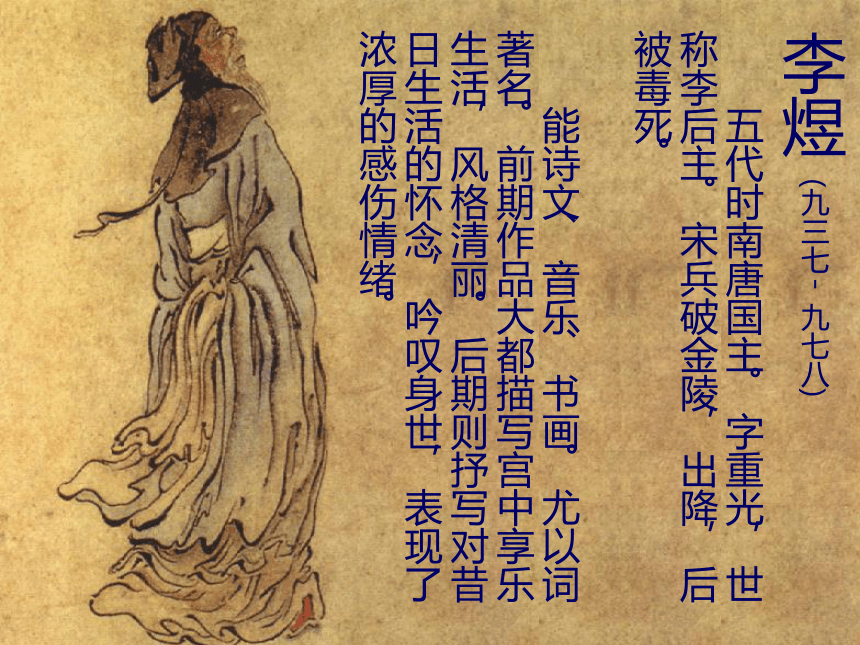 李煜(九三七-九七八)
五代时南唐国主。字重光,世
称李后主。宋兵破金陵,出降,后
被毒死。
能诗文、音乐、书画。尤以词
著名。前期作品大都描写宫中享乐
生活,风格清丽。后期则抒写对昔
日生活的怀念,吟叹身世,表现了
浓厚的感伤情绪。